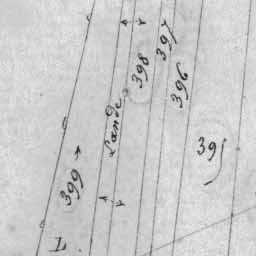 397
398
396
Lande
395
399
L